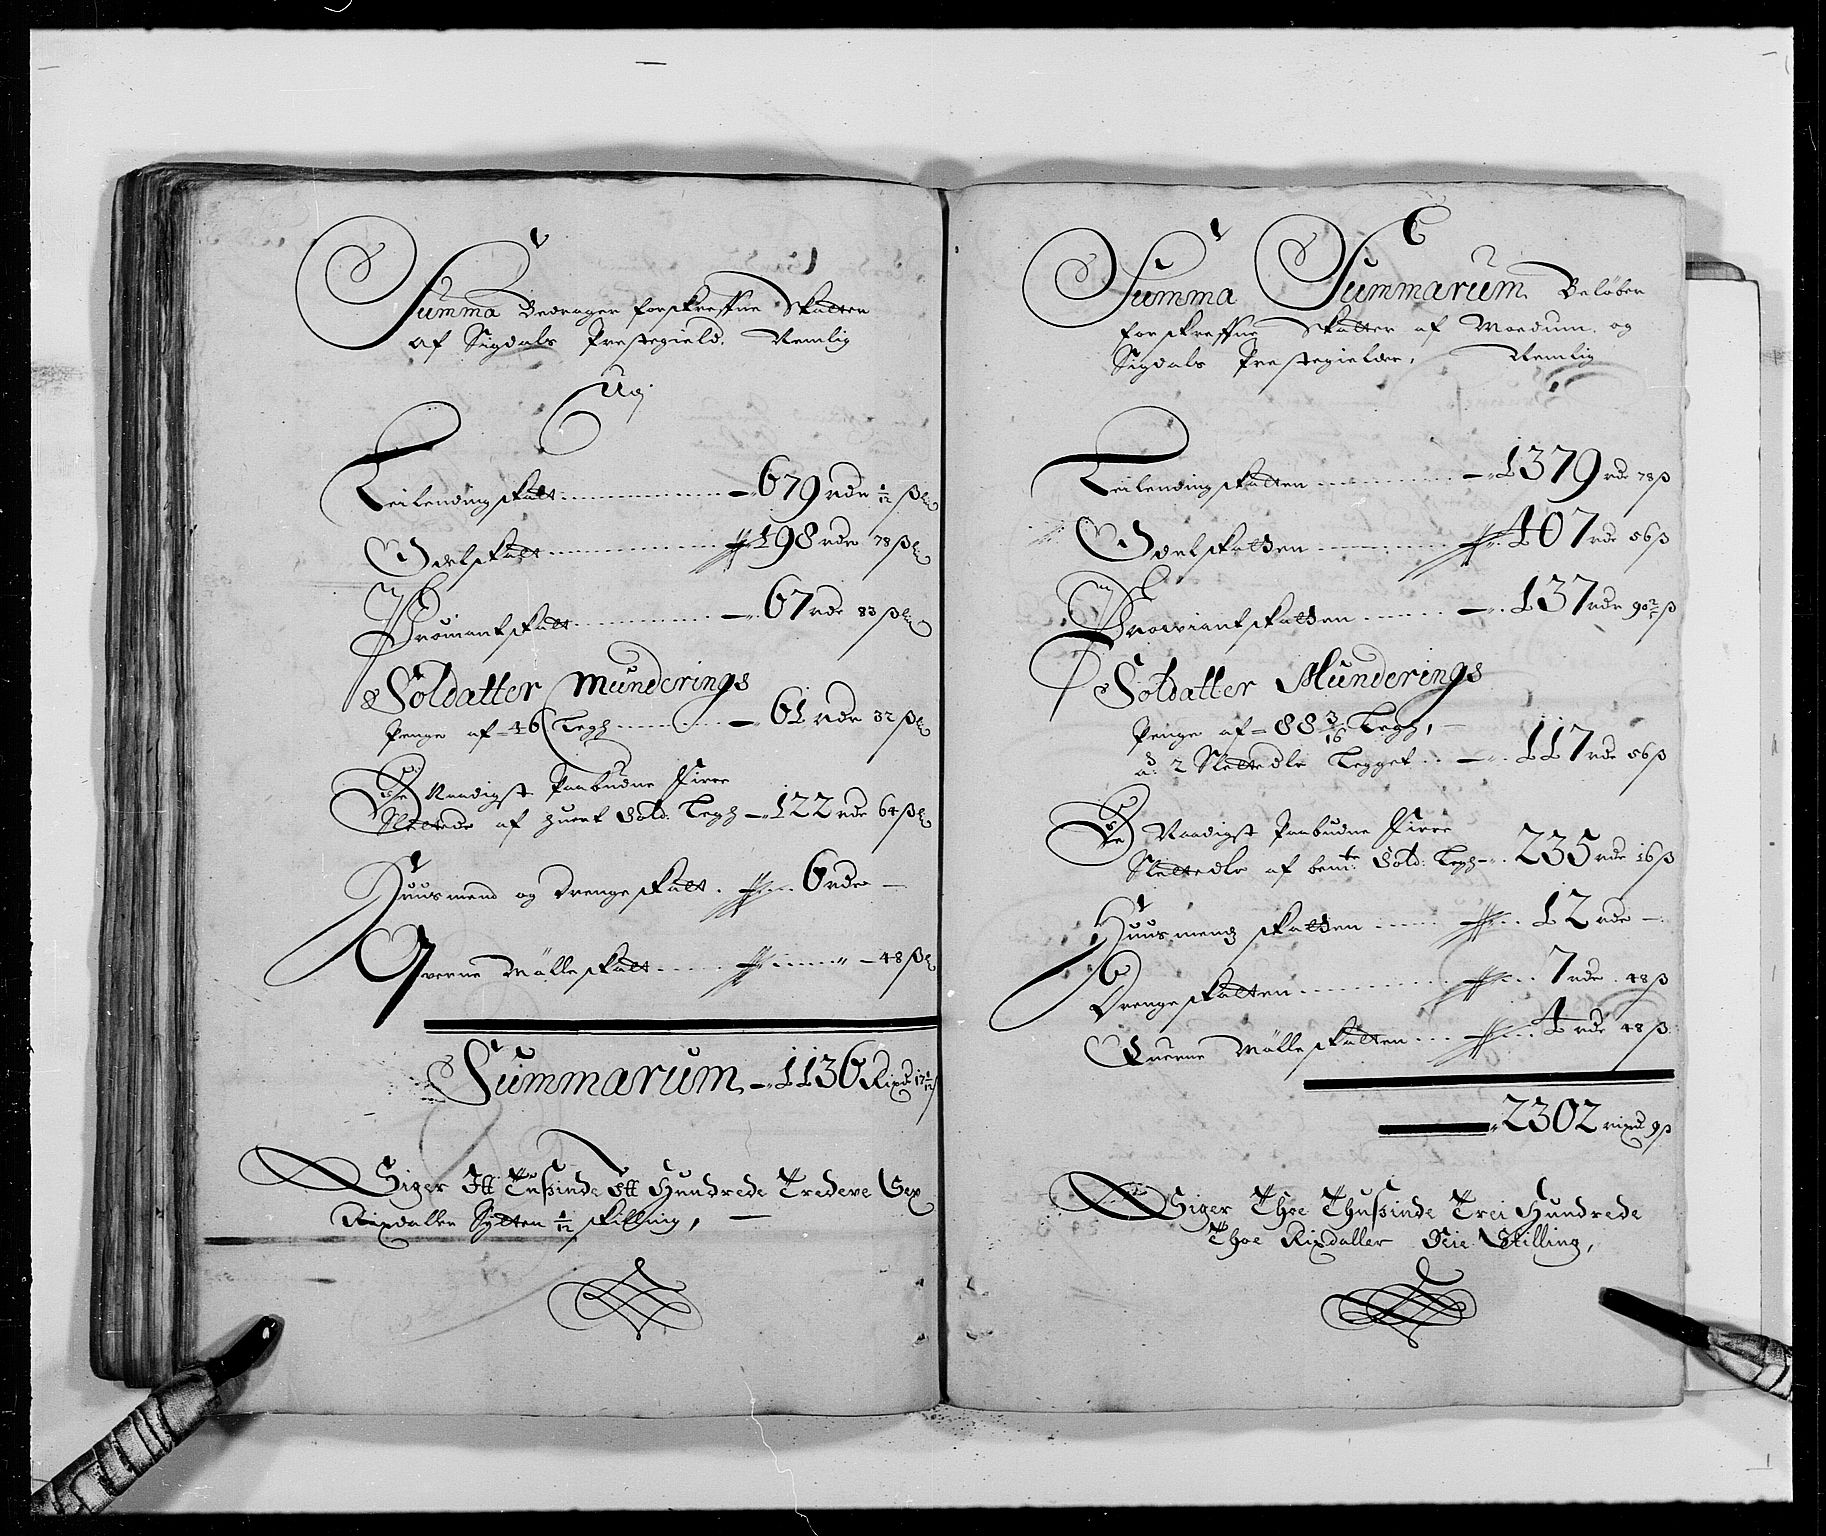 Summa Bedrager forskreffne Skatter
af Sigdals Prestegield. Nemlig
Leilendingskatt 679 rdr 1/12 ß
Odelskatt 198 rdr 78 ß
Proviantskatt 67 rdr 83 ß
Soldatter Munderings
Penge af 46 Legh 61 rdr 32 ß
De Naadigst Paabudne Firre
Slettedr af huert Sold: Legh 122 rdr 64 ß
Huusmend og Drengeskatt 6 rdr
Qverne Mølleskatt 48 ß
Summarum 1136 Rixd 17 1/12 ß
Siger Itt Tusinde Itt Hundrede Tredeve Sex
Rixdaller Sytten 1/12 skilling,
Summa Summarum Beløber
forskreffne Skatter af Moedum og
Sigdals Prestegielder, Nemlig
Leilendingskatten 1379 rdr 78 ß
Odelskatten 407 rdr 56 ß
Proviantskatten 137 rdr 90 2/5 ß
Soldatter Munderings
Penge af 88 3/16 Legh,
a: 2 Slettedlr Legget 117 rdr 56 ß
De Naadigst Paabudne Firre
Slettedlr af bemte: Sold: Legh 235 rdr 16 ß
Huusmends skatten 12 rdr
Drengeskatten 7 rdr 48 ß
Querne Mølleskatten 4 rdr 48 ß
2302 rixd 9 ß
Siger Thoe Thusinde Trei Hundrede
Thoe Rixdaller Nie Skilling,